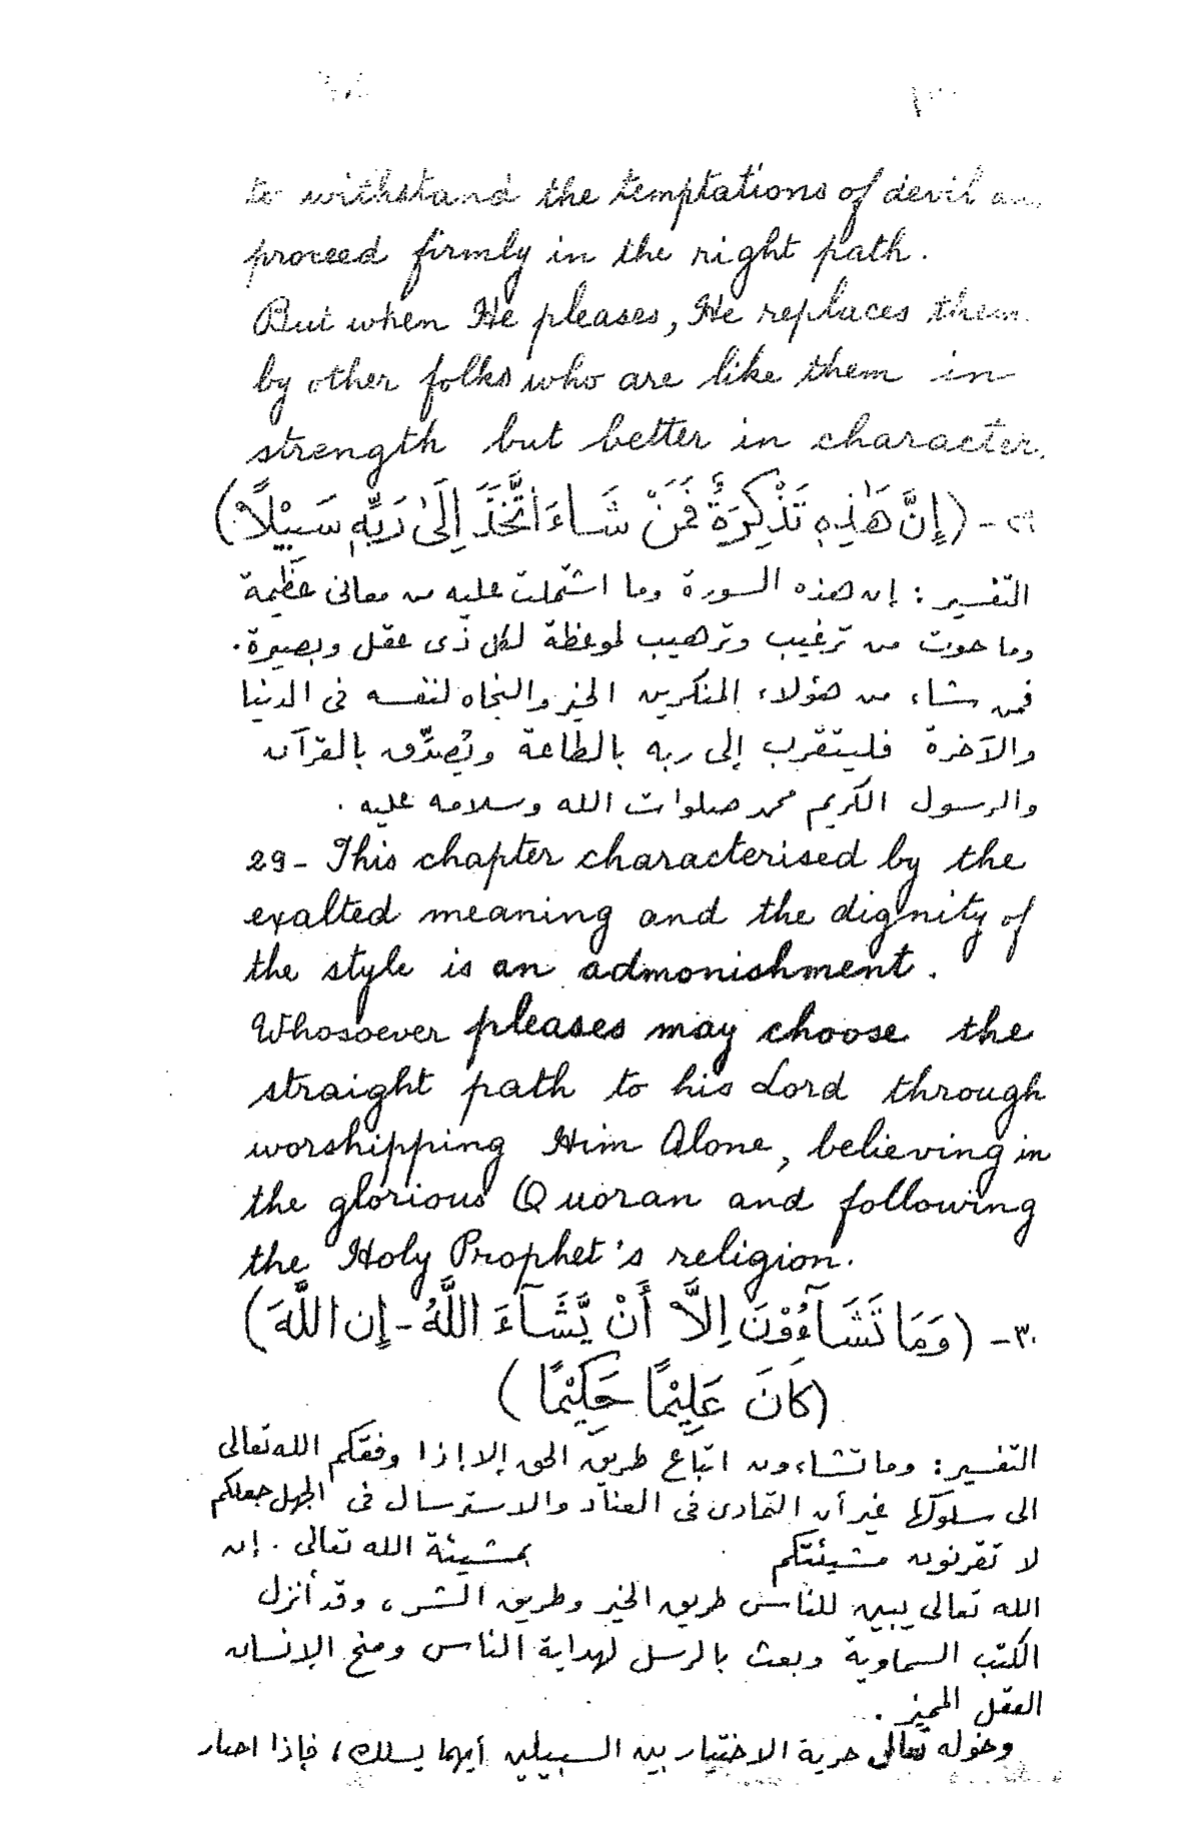 to withstand the temptations of devil
proceed firmly in the right path.
But when He pleases, He replaces them
by other folks who are like them in
strength but better in character.
٢٩- (إِنَّ هَٰذِهِ تَذْكِرَةٌ فَمَنْ شَاءَ اتَّخَذَ إِلَىٰ رَبِّهِ سَبِيْلًا)
التفسير : إن هذه السورة وما اشتملت عليه من معانى عظيمة
وما حوت من ترغيب وترهيب لموعظة لكل ذى عقل وبصيرة.
فمن شاء من هؤلاء المنكرين الخير والنجاه لنفسه فى الدنيا
والآخرة فليتقرب إلى ربه بالطاعة ويُصدِّق بالقرآن
والرسول الكريم محمد صلوات الله وسلامه عليه .
29- This chapter characterised by the
exalted meaning and the dignity of
the style is an admonishment.
Whosoever pleases may choose the
straight path to his Lord through
worshipping Him Alone, believing in
the glorious Quoran and following
the Holy Prophet's religion.
٣٠- (وَمَا تَشَآءُوْنَ اِلاَّ أَنْ يَّشَآءَ اللَّهُ - إِن اللَّهَ)
(كَانَ عَلِيْمًا حَكِيْمًا)
التفسير: وما تشاءون اتباع طريق الحق إلا إذا وفقكم الله تعالى
الى سلوكها غير أن التمادى فى العناد والاسترسال فى الجهل جعلكم
لا تقرنون مشيئتكم بمشيئة الله تعالى . إن
الله تعالى يبين للناس طريق الخير وطريق الشر ، وقد أنزل
الكتب السماوية وبعث بالرسل لهداية الناس ومنح الإنسان
العقل المميز .
وخوله تعالى حرية الاختيار بين السبيلين أيهما يسلك ، فإذا اختار